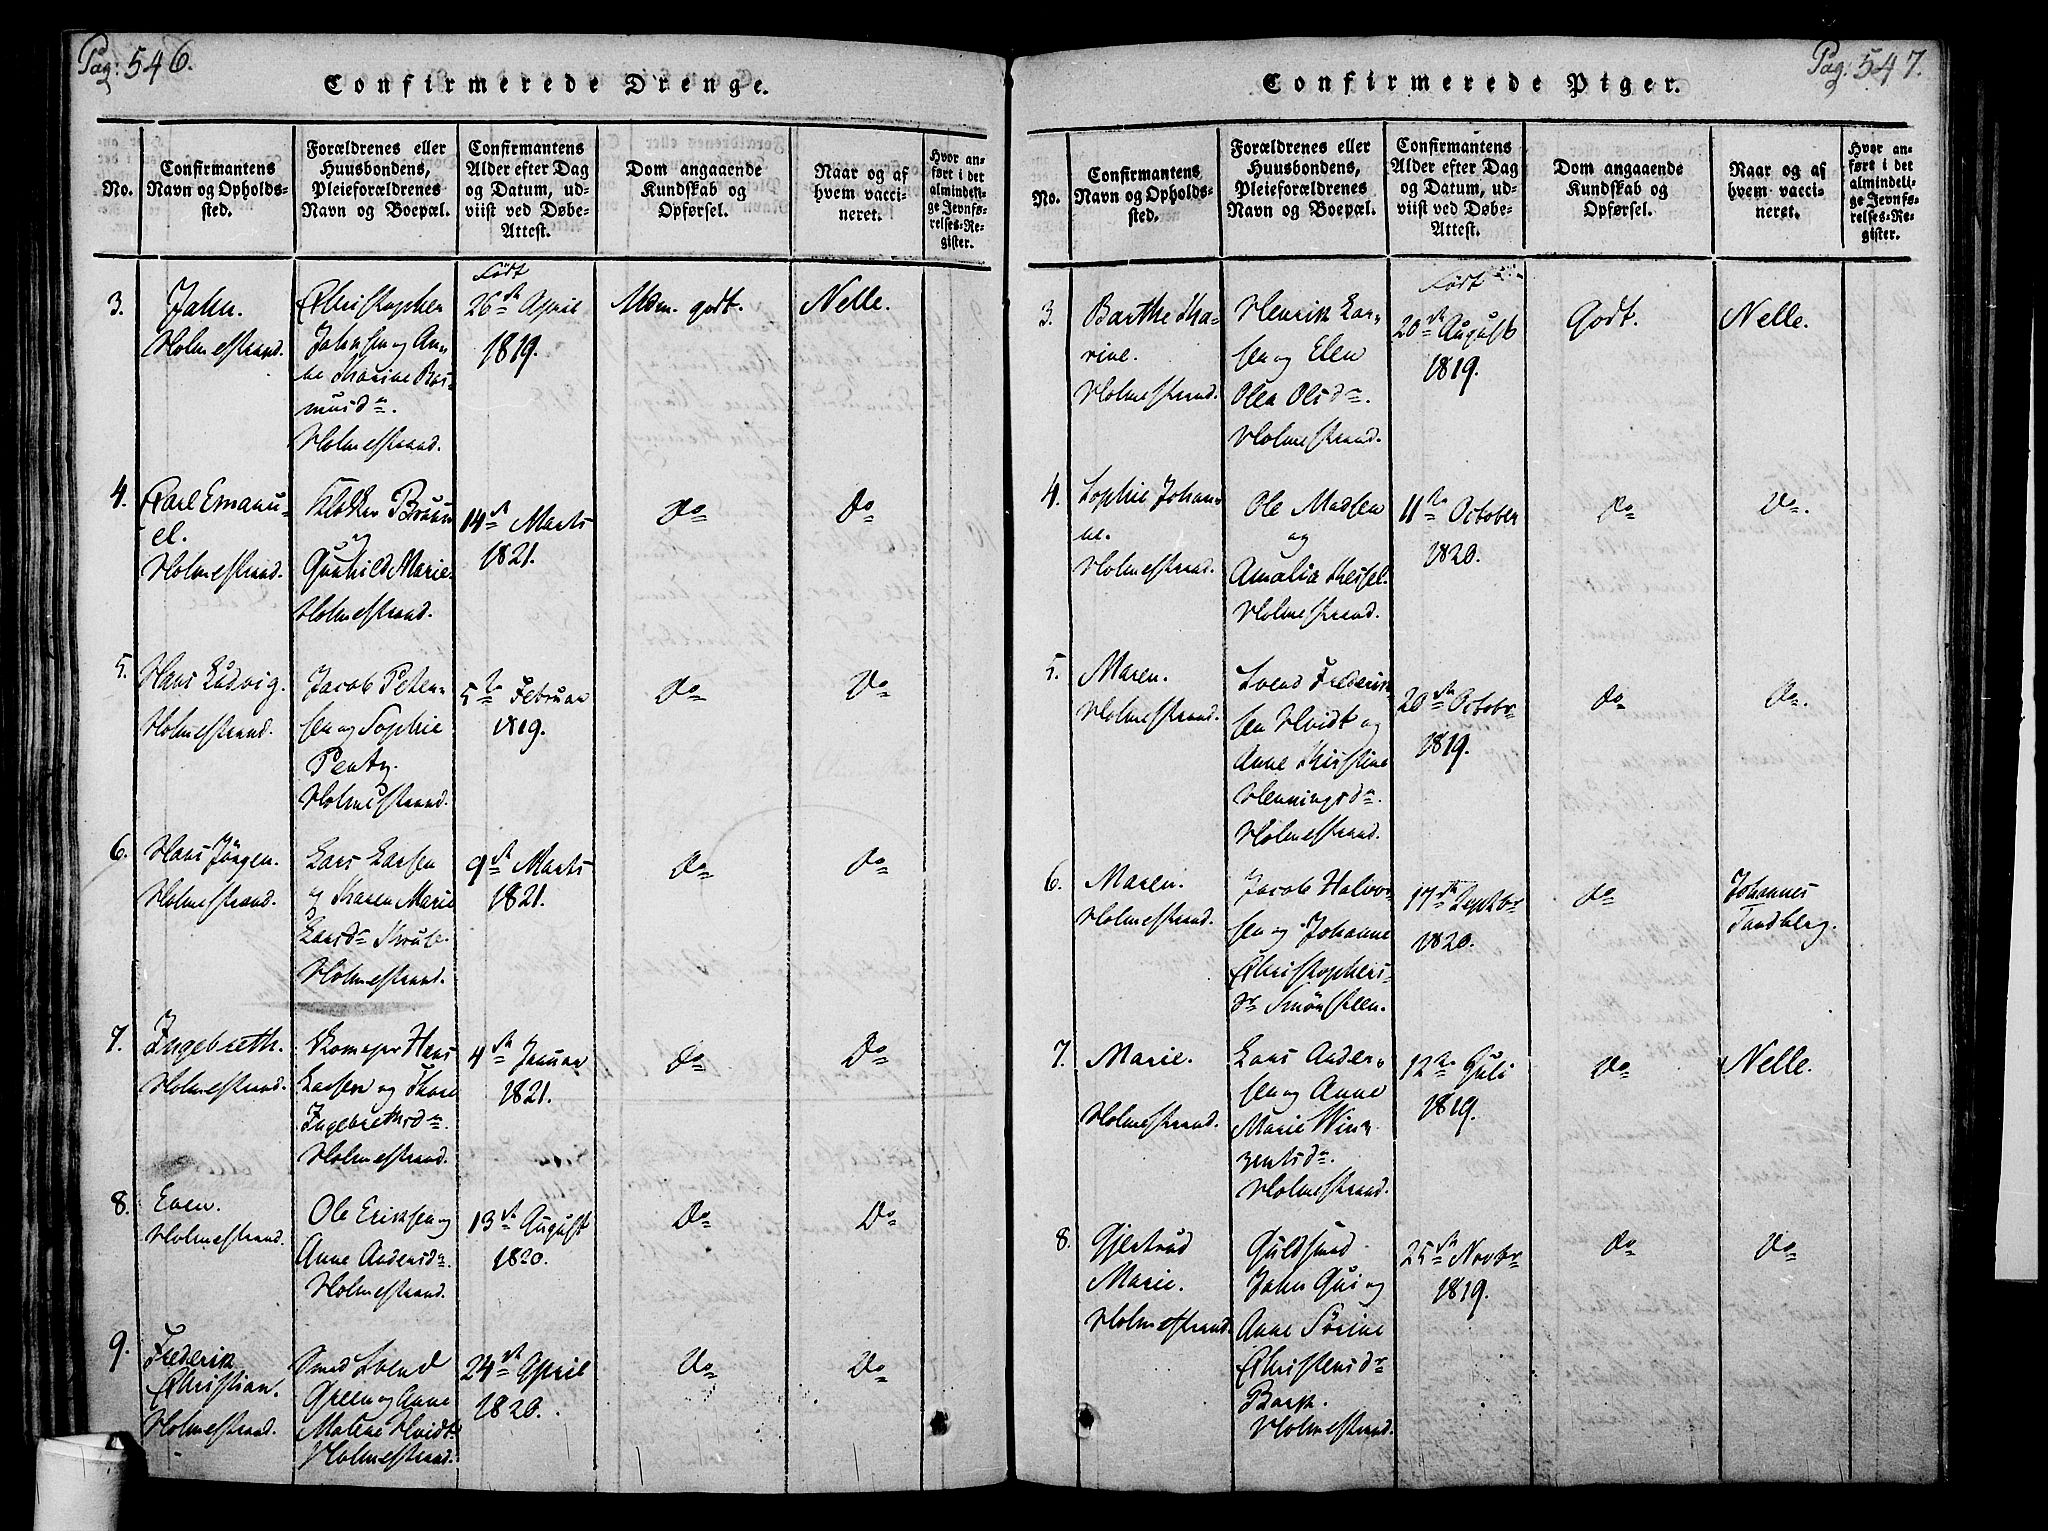 Pag: 546.
Confirmerede Drenge.
No.
Confirmantens
Navn og Opholds-
sted.
Forældrenes eller
Huusbondens,
Pleieforældrenes
Navn og Boepæl.
Confirmantens
Alder efter Dag
og Datum, ud-
viist ved Døbe-
Attest.
Dom angaaende
Kundskab og
Opførsel.
Naar og af
hvem vacci-
neret.
Hvor an-
ført i det
almindeli-
ge Jevnfø-
relses-Re-
gister.
3.
Jahn.
Holmestrand.
Christopher
Jahnsen og An-
ne Marine Ras-
musdn.
Holmestrand.
Født
26de April
1819.
Mdm. godt.
Nelle.
4.
Carl Emanu-
el.
Holmestrand.
Klokker Bruun
og
Gunhild Marie.
Holmestrand.
14de Marts
1821.
do
Do
5.
Hans Ludvig.
Holmestrand.
Jacob Peter-
sen og Sophie
Penty.
Holmestrand.
5te Februar
1819.
do
Do
6.
Hans Jørgen.
Holmestrand.
Lars Larsen
og Karen Marie
Larsdn Krube.
Holmestrand.
9de Marts
1821.
do
do
7.
Ingebreth.
Holmestrand.
Hans
Larsen og
Ingebrethsdn
Holmestrand.
4de Januar
1821.
Do
Do
8.
Even.
Holmestrand.
Ole Eriksen og
Anne Andersdn.
Holmestrand.
13de August
1820.
Do
Do
9.
Frederik
Christian.
Holmestrand.
Smed Svend
Green og Anne
Matene Hvidt.
Holmestrand.
24de April
1820.
Do
Do
Pag: 547.
Confirmerede Piger.
No.
Confirmantens
Navn og Opholds-
sted.
Forældrenes eller
Huusbondens,
Pleieforældrenes
Navn og Boepæl.
Confirmantens
Alder efter Dag
og Datum, ud-
viist ved Døbe-
Attest.
Dom angaaende
Kundskab og
Opførsel.
Naar og af
hvem vacci-
neret.
Hvor an-
ført i det
almindeli-
ge Jevnfø-
relses-Re-
gister.
3.
Barthe Ka-
rine.
Holmestrand.
Henrik Lar-
sen og Elen
Olea Olsdn.
Holmestrand.
Født
20de August
1819.
Godt.
Nelle.
4.
Sophie Johan-
ne.
Holmestrand.
Ole Madsen
og
Amalia Kessel.
Holmestrand.
11te October
1820.
do
Do.
5.
Maren.
Holmestrand.
Svend Frederik-
sen Hvidt og
Anne Kirstine
Henningsdn.
Holmestrand.
20de Octobr
1819.
do
do.
6.
Maren.
Holmestrand.
Jacob Halvor-
sen og Johanne
Christophers-
dr Smønsteen.
17de Septbr
1820.
do
Johannes
Tandberg.
7.
Marie.
Holmestrand.
Lars Ander-
sen og Anne
Marie Win-
zentsdn.
Holmestrand.
12te Juli
1819.
Do
Nelle.
8.
Gjertrud
Marie.
Holmestrand.
Guldsmed
Jahn Gui og
Anne Sørine
Christensdr
Bark.
Holmestrand.
25de Novbr
1819.
do
Do